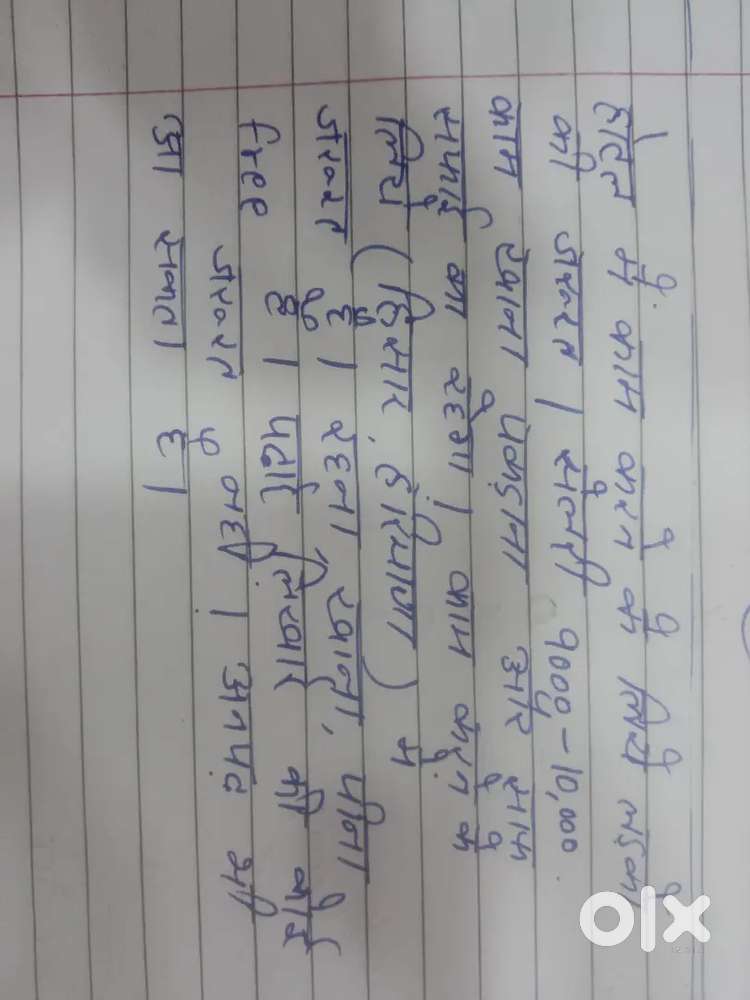 होटल में काम करने के लिये लड़के
की जरूरत । सैलरी 9000 - 10,000
काम खाना पकड़ाना और साफ
सफाई का रहेगा । काम करने के
लिये (हिसार, हरियाणा) में
जरूरत है । रहना खाना, पीना
free है । पढाई लिखाई की कोई
जरूरत नही । अनपढ भी
आ सकता है ।
olx